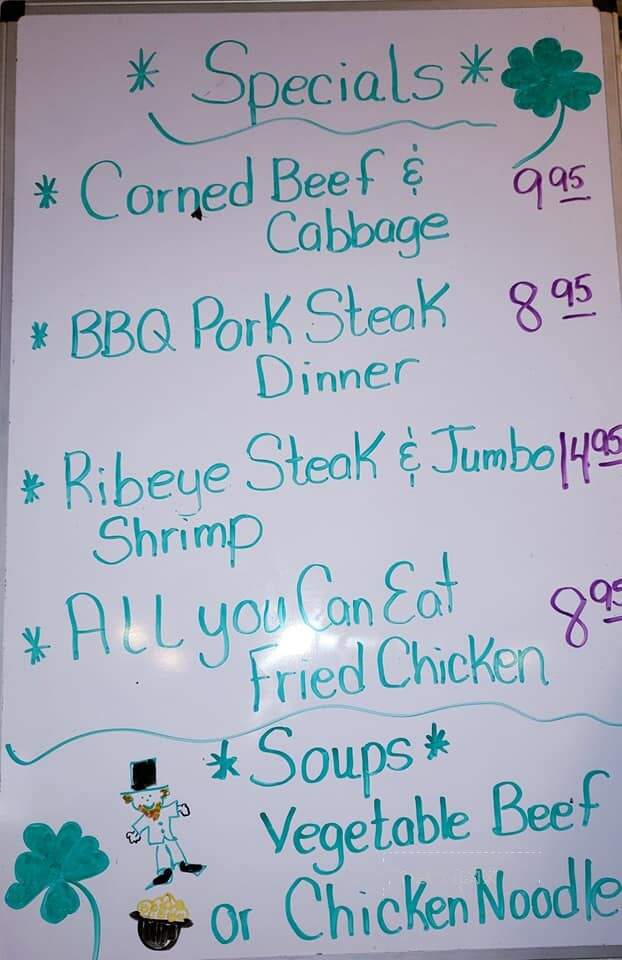 * Specials *
* Corned Beef & 9 95
Cabbage
* BBQ Pork Steak 8 95
Dinner
* Ribeye Steak & Jumbo 14 95
Shrimp
* All you Can Eat 8 95
Fried Chicken
* Soups *
Vegetable Beef
or Chicken Noodle